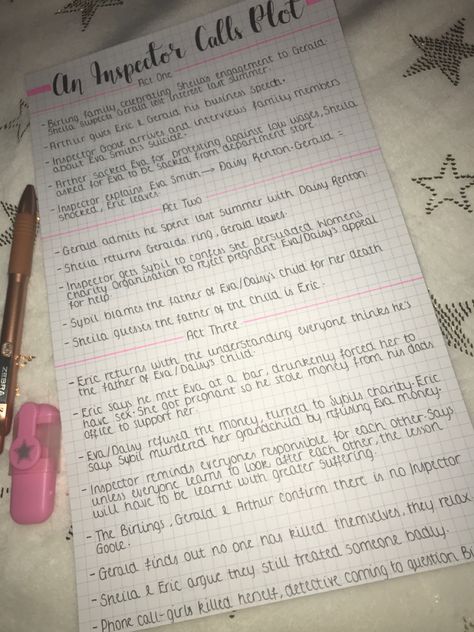 An Inspector Calls Plot
Act One
- Birling family celebrating Sheila's engagement to Gerald.
Sheila suspects Gerald lost interest last summer.
- Arthur gives Eric & Gerald his business speech.
- Inspector Goole arrives and interviews family members
about Eva Smith's suicide.
- Arther sacked Eva for protesting against low wages, Sheila
asked for Eva to be sacked from department store
- Inspector explains Eva Smith → Daisy Renton-Gerald =
shocked, Eric leaves.
Act Two
- Gerald admits he spent last summer with Daisy Renton.
- Sheila returns Geralds ring, Gerald leaves.
- Inspector gets Sybil to confess she persuaded womens
charity organisation to reject pregnant Eva/Daisy's appeal
for help.
- Sybil blames the father of Eva/Daisy's child for her death
- Sheila guesses the father of the child is Eric.
Act Three
- Eric returns with the understanding everyone thinks he's
the father of Eva/Daisy's child.
- Eric says he met Eva at a bar, drunkenly forced her to
have sex. She got pregnant so he stole money from his dads
office to support her.
- Eva/Daisy refused the money, turned to Sybils charity-Eric
says Sybil murdered her grandchild by refusing Eva money.
- Inspector reminds everyones responsible for each other-says
unless everyone learns to look after each other, the lesson
will have to be learnt with greater suffering.
- The Birlings, Gerald & Arthur confirm there is no Inspector
Goole.
- Gerald finds out no one has killed themselves, they relax
- Sheila & Eric argue they still treated someone badly.
- Phone call-girls killed herself, detective coming to question
ZEBRA